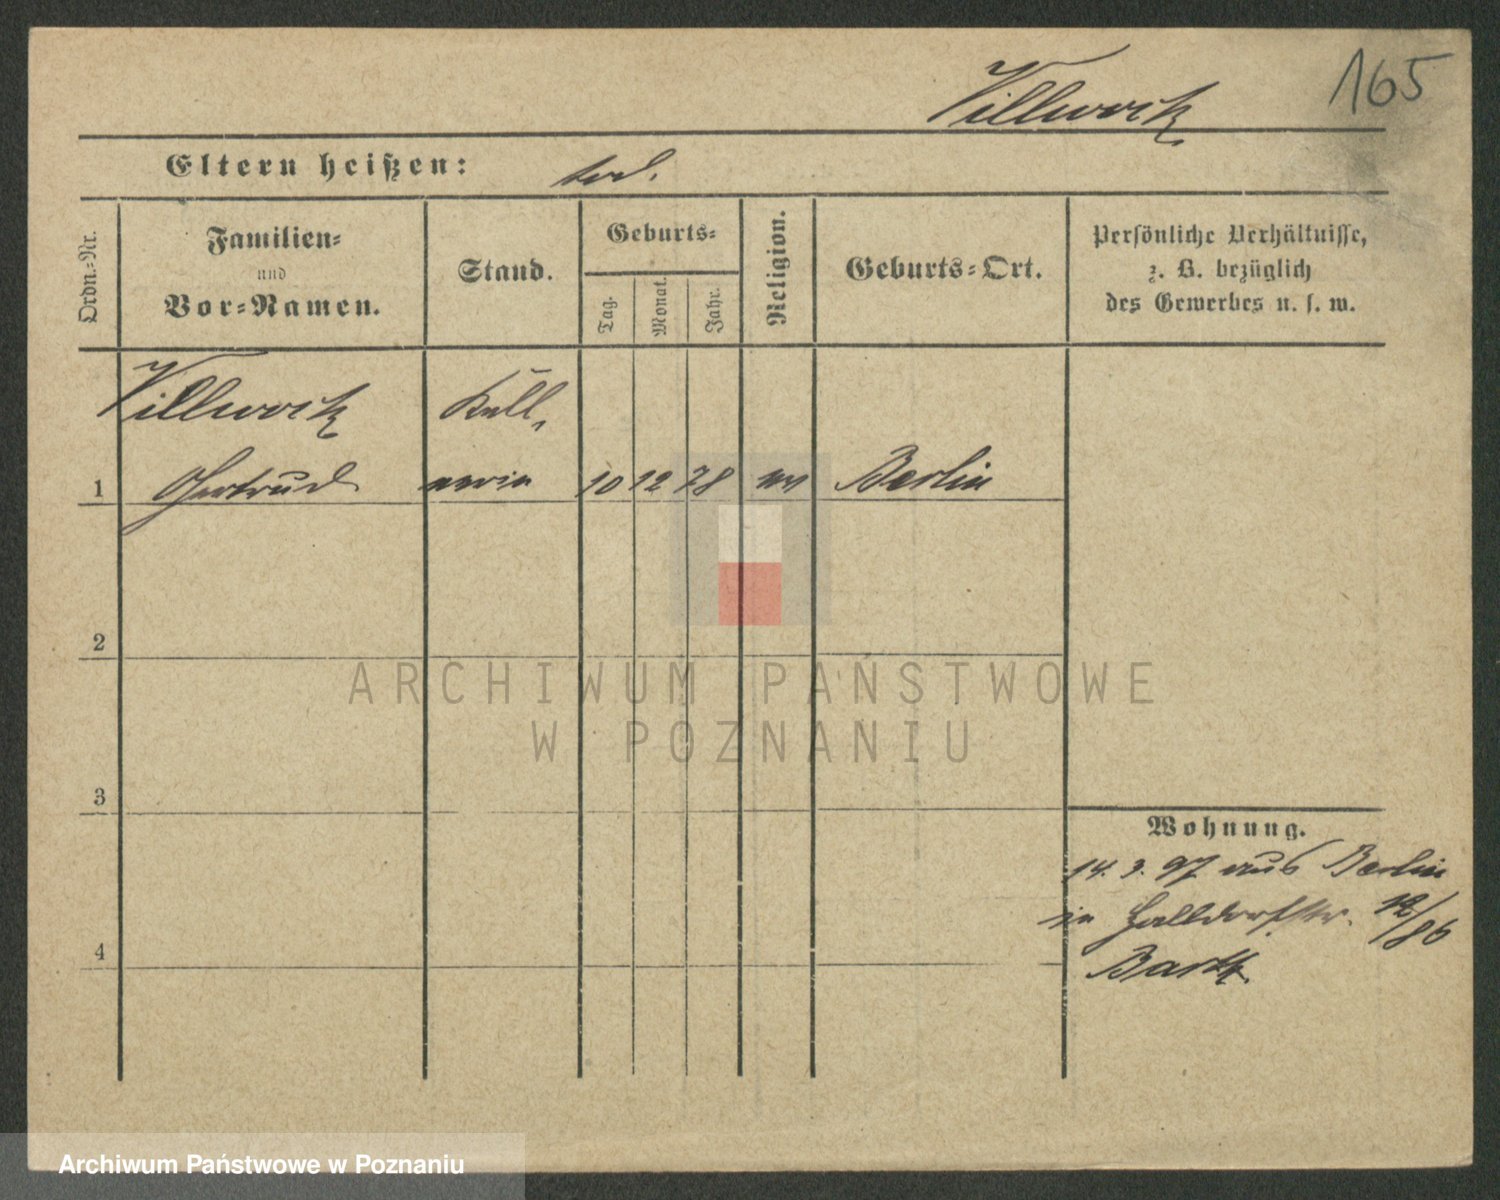 165
Villwock
Eltern heißen: tod.
Ordn.-Nr.
Familien-
und
Vor-Namen.
Stand.
Geburts-
Tag.
Monat.
Jahr.
Religion.
Geburts-Ort.
Persönliche Verhältnisse,
z. B. bezüglich
des Gewerbes u. s. w.
Villwock Kell-
1 Gertrud nerin 10 12 78 ev Berlin
2
ARCHIWUM PAŃSTWOWE
W POZNANIU
3
Wohnung.
14. 3. 97 aus Berlin
in Halldorfstr. 12/86
4
Archiwum Państwowe w Poznaniu